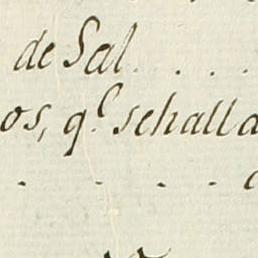 de Sal. . . . .
os, q.e se halla
. . . .